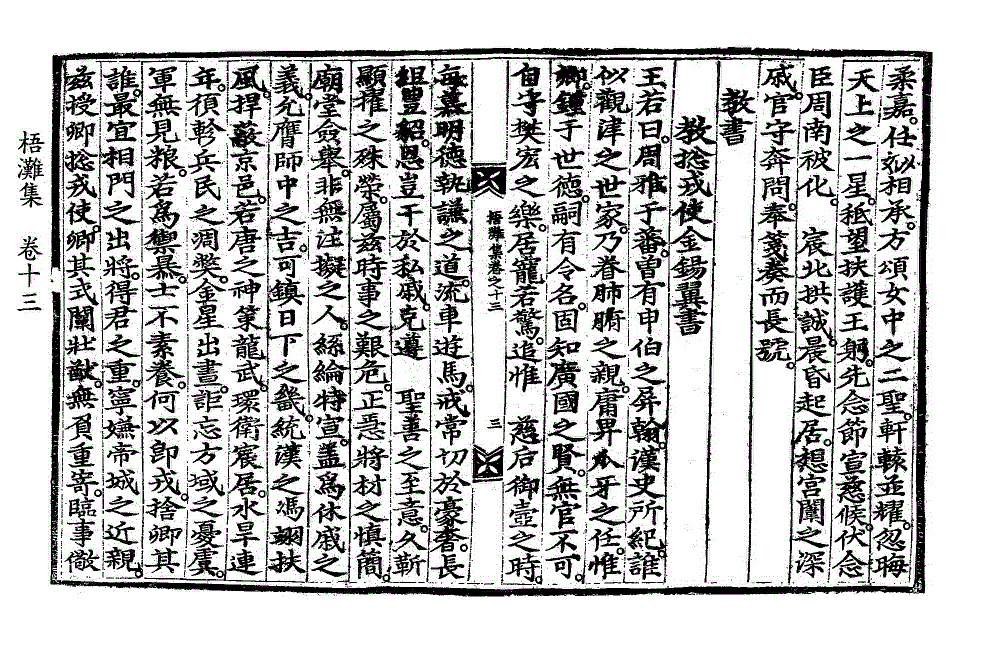 柔嘉。仕姒相承。方頌女中之二聖。軒轅並耀。忽晦
天上之一星。祗望扶護王躬。先念節宣慈候。伏念
臣周南被化。 宸北拱誠。晨昏起居。想宮闈之深
戚。官守奔問。奉箋奏而長號。
敎書
敎捴戎使金錫翼書
王若曰。周雅于蕃。曾有申伯之屛翰。漢史所紀。誰
似觀津之世家。乃眷肺腑之親。庸畀爪牙之任。惟
卿鍾于世德。嗣有令名。固知廣國之賢。無官不可。
自守樊宏之樂。居寵若驚。追惟 慈后御壼之時
梧灘集卷之十三 三
每慕明德執謙之道。流車遊馬。戒常切於豪奢。長
組豊貂。恩豈干於私戚。克遵 聖善之至意。久斬
顯擢之殊榮。屬玆時事之艱危。正恐將材之愼簡。
廟堂僉擧。非無注擬之人。絲綸特宣。盖爲休戚之
義。允膺師中之吉。可鎭日下之畿。統漢之馮翊扶
風。捍蔽京邑。若唐之神策龍武。環衛宸居。水旱連
年。湏軫兵民之凋弊。金星出晝。詎忘方域之憂虞。
軍無見粮。若爲禦暴。士不素養。何以卽戎。捨卿其
誰。最宜相門之出將。得君之重。寧嫌帝城之近親。
玆授卿捴戎使。卿其式闡壯猷。無負重寄。臨事儆
梧灘集 卷十三